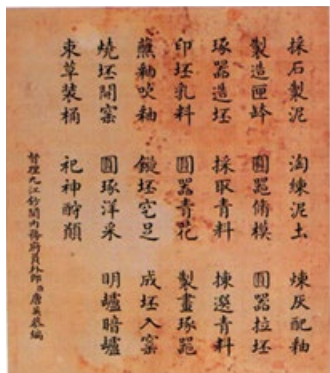 採石製泥 淘練泥土 煉灰配釉
製造匣鉢 圓器俻模 圓器拉坯
琢器造坯 採取青料 揀選青料
印坯乳料 圓器青花 製畫琢器
蘸釉吹釉 鏇坯穵足 成坯入窑
燒坯開窑 圓琢洋采 明爐暗爐
束草裝桶 祀神酧願
督理九江鈔關內務府員外郎臣唐英恭編